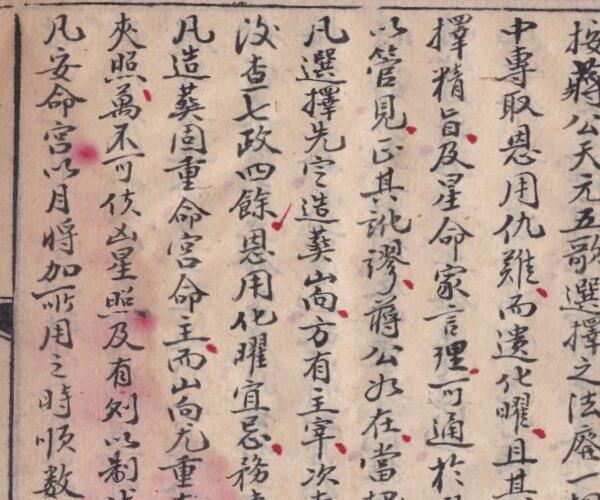 按蔣公天元五歌選擇之法廢一
中專取恩用仇難而遺化曜且其
擇精旨及星命家言理可通於
以管見正其訛謬蔣公如在當
凡選擇先定造葬山向方有主宰次
沒查七政四餘恩用化曜宜忌務
凡造葬固重命宮命主而山向尤重
夾照萬不可使凶星照及有刻以制
凡安命宮以月將加所用之時順數